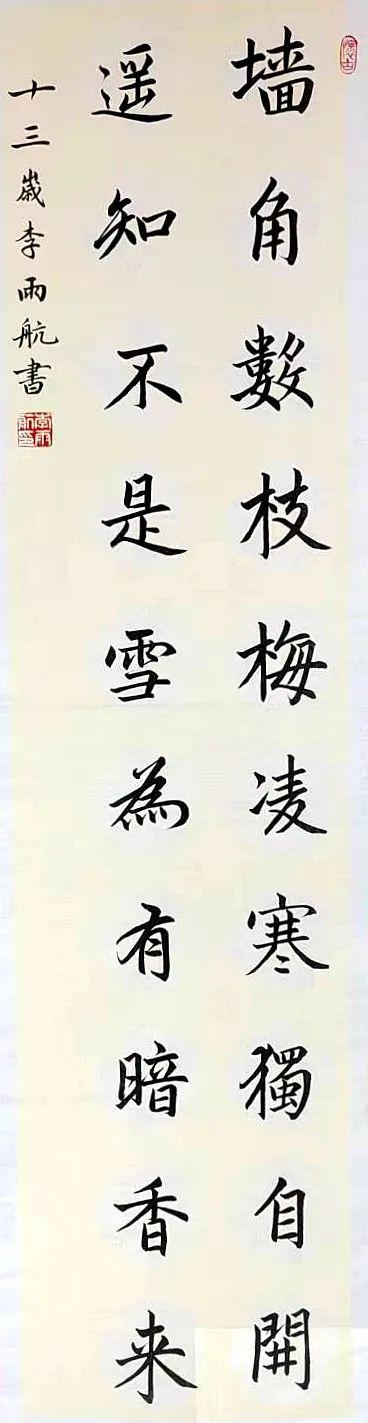 墙角數枝梅凌寒獨自開
遥知不是雪為有暗香来
十三歲李雨航書